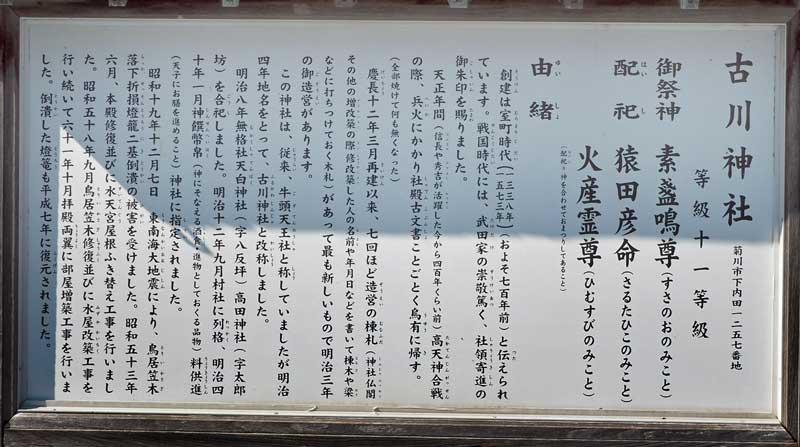 古川神社
菊川市下内田一二五七番地
等級十一等級
御祭神 素盞鳴尊(すさのおのみこと)
配祀 猿田彦命(さるたひこのみこと)
火産霊尊(ひむすびのみこと)
(配祀=神を合わせておまつりしてあること)
由緒
創建は室町時代(一三三八年 一五七三年)(およそ七百年前)と伝えられ
ています。戦国時代には、武田家の崇敬篤く、社領寄進の
御朱印を賜りました。
天正年間(信長や秀吉が活躍した今から四百年くらい前)高天神合戦
の際、兵火にかかり社殿古文書ことごとく烏有に帰す。
(全部焼けて何も無くなった)
慶長十二年三月再建以来、七回ほど造営の棟札(神社仏閣
その他の増改築の際修改築した人の名前や年月日などを書いて棟木や梁
などに打ちつけておく木札)があって最も新しいもので明治三年
の御造営があります。
この神社は、従来、牛頭天王社と称していましたが明治
四年地名をとって、古川神社と改称しました。
明治八年無格社天白神社(字八反坪)高田神社(字太郎
坊)を合祀しました。明治十二年九月村社に列格、明治四
十年一月神饌幣帛(神にそなえる酒食・進物としておくる品物)料供進
(天子にお膳を進めること)神社に指定されました。
昭和十九年十二月七日 東南海大地震により、鳥居笠木
落下折損燈籠二基倒潰の被害を受けました。昭和五十三年
六月、本殿修復並びに水天宮屋根ふき替え工事を行いまし
た。昭和五十八年九月鳥居笠木修復並びに水屋改築工事を
行い続いて六十一年十月拝殿両翼に部屋増築工事を行いま
した。倒潰した燈篭も平成七年に復元されました。